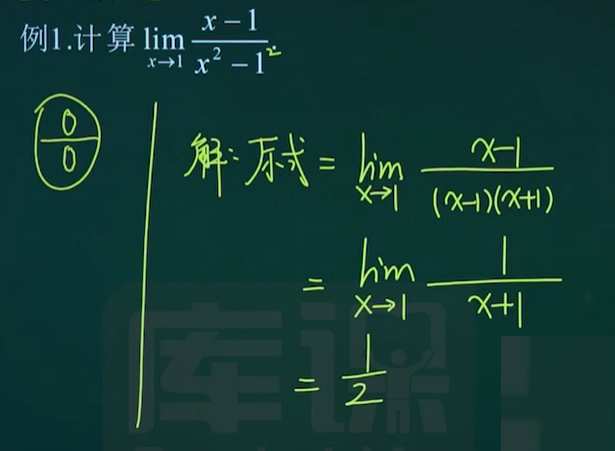 例1.计算 lim x→1 (x-1)/(x²-1²)
0/0
解：原式 = lim x→1 (x-1)/((x-1)(x+1))
= lim x→1 1/(x+1)
= 1/2
库课